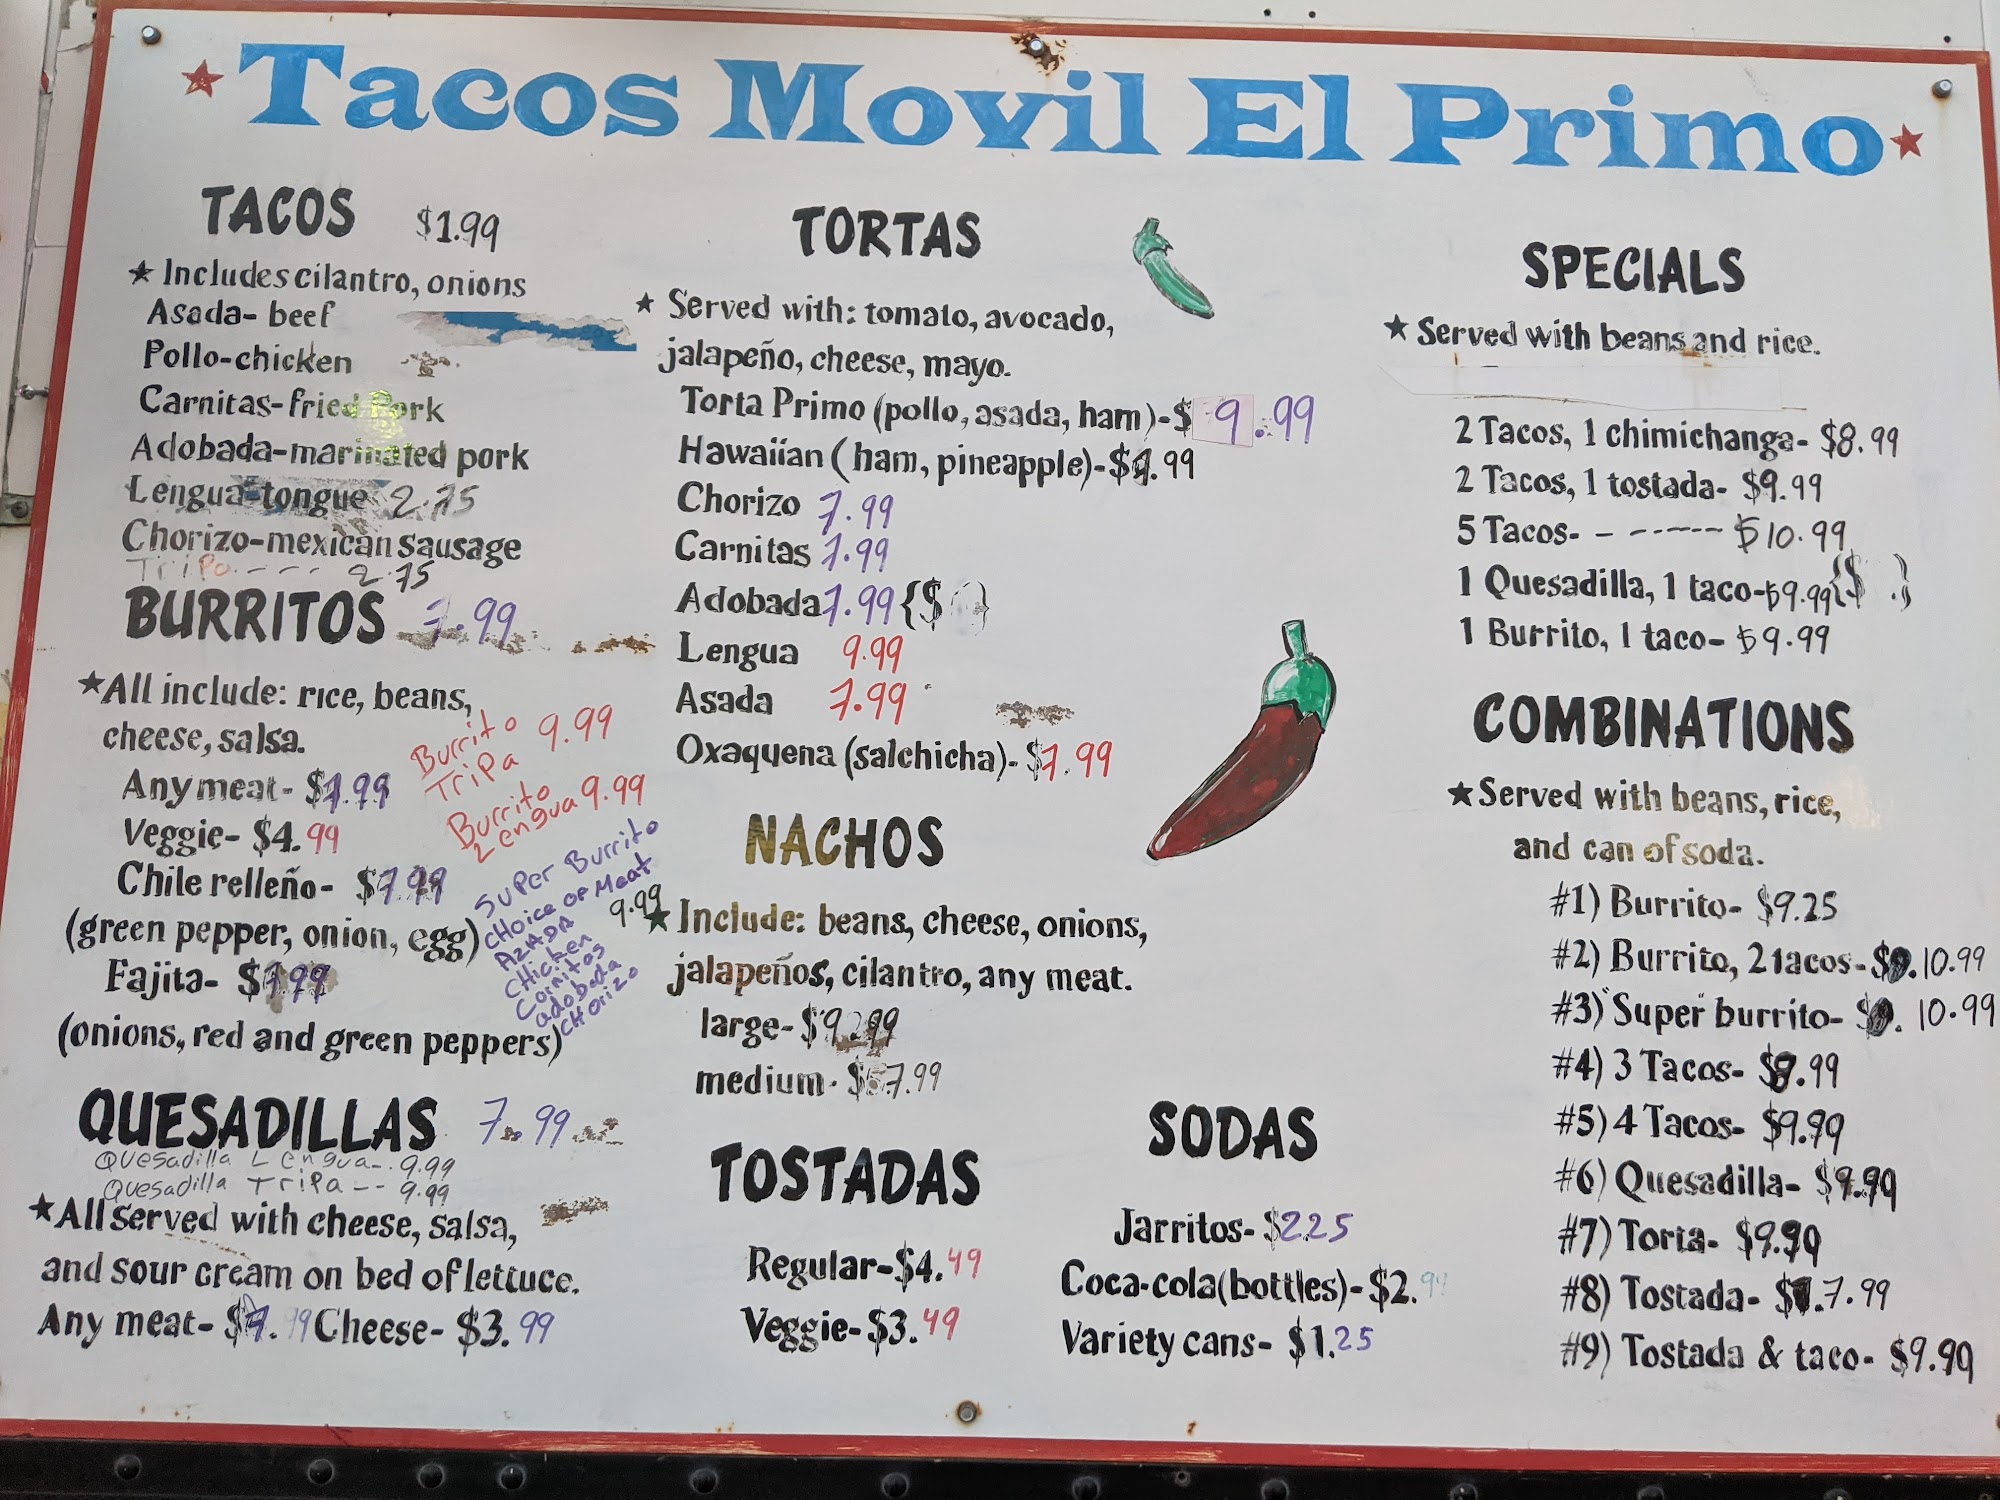 Tacos Movil El Primo
TACOS $1.99
Includes cilantro, onions
Asada- beef
Pollo-chicken
Carnitas-fried Pork
Adobada-marinated pork
Lengua-tongue 2.75
Chorizo-mexican sausage
Tripa---- 2.75
BURRITOS 7.99
All include: rice, beans,
cheese, salsa.
Any meat- $7.99
Veggie- $4.99
Chile relleño- $7.99
(green pepper, onion, egg)
Fajita- $7.99
(onions, red and green peppers)
Burrito
Tripa 9.99
Burrito
Lengua 9.99
Super Burrito
CHoice oF Meat
9.99
AZADA
CHicken
Cornitos
adobada
CHorizo
QUESADILLAS 7.99
Quesadilla Lengua-. 9.99
Quesadilla Tripa-- 9.99
All served with cheese, salsa,
and sour cream on bed of lettuce.
Any meat- $7.99 Cheese- $3.99
TORTAS
Served with: tomato, avocado,
jalapeño, cheese, mayo.
Torta Primo (pollo, asada, ham)-$9.99
Hawaiian (ham, pineapple)-$ .99
Chorizo 7.99
Carnitas 7.99
Adobada 7.99 {$ }
Lengua 9.99
Asada 7.99
Oxaquena (salchicha)- $7.99
NACHOS
Include: beans, cheese, onions,
jalapeños, cilantro, any meat.
large- $9.99
medium- $7.99
TOSTADAS
Regular-$4.49
Veggie-$3.49
SODAS
Jarritos- $2.25
Coca-cola(bottles)-$2.99
Variety cans- $1.25
SPECIALS
Served with beans and rice.
2 Tacos, 1 chimichanga- $8.99
2 Tacos, 1 tostada- $9.99
5 Tacos- - ------ $10.99
1 Quesadilla, 1 taco-$9.99 {$ .}
1 Burrito, 1 taco- $9.99
COMBINATIONS
Served with beans, rice,
and can of soda.
#1) Burrito- $9.25
#2) Burrito, 2 tacos- $ 10.99
#3) Super burrito- $ 10.99
#4) 3 Tacos- $8.99
#5) 4 Tacos- $9.99
#6) Quesadilla- $9.99
#7) Torta- $9.99
#8) Tostada- $ 7.99
#9) Tostada & taco- $9.99